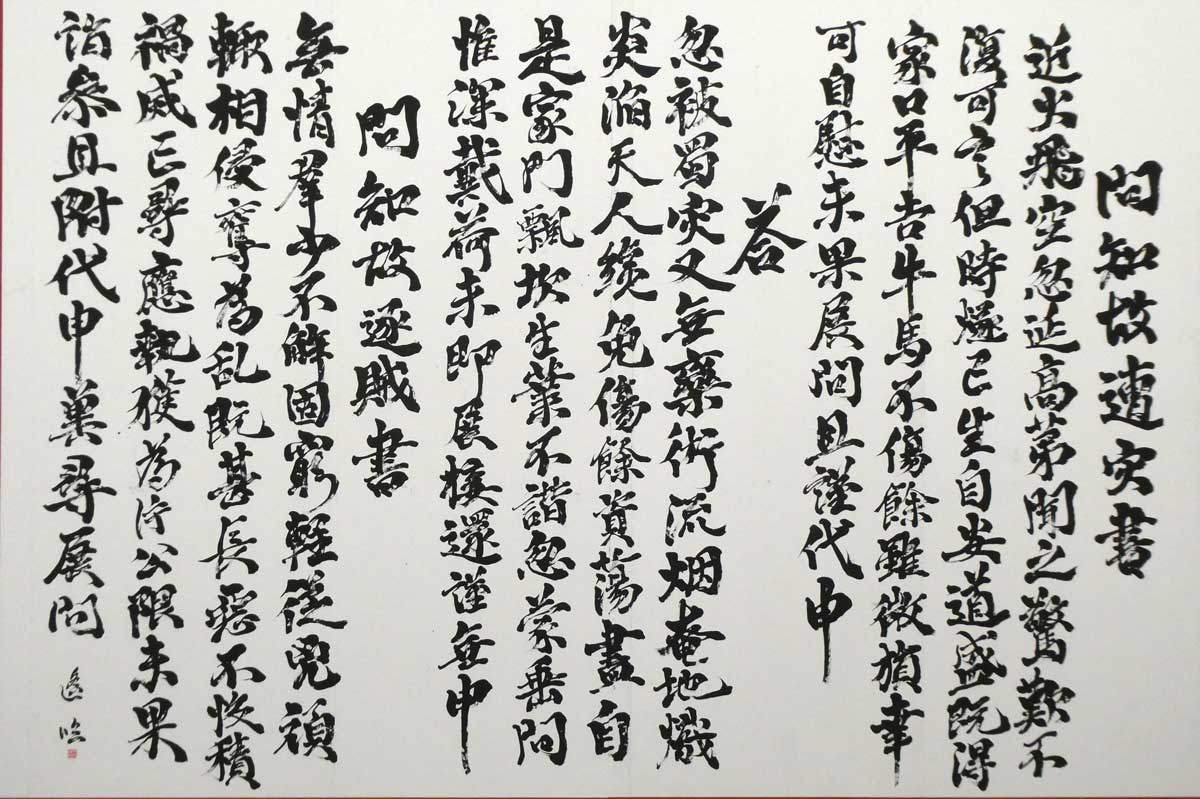 問知故遭灾書
近火飛空忽延高第聞之驚歎不
復可言但時燧已生自安道盛既得
家口平吉牛馬不傷餘雖微損幸
可自慰未果展問且謹代申
答
忽被蜀灾又無欒術流烟奄地熾
炎滔天人纔免傷餘資蕩盡自
是家門飄坎生業不諧忽蒙垂問
惟深戴荷未即展接還謹無申
問知故逐賊書
無情羣少不解固窮輕從兇頑
轍相侵奪為乱既甚長惡不悛積
禍威已尋應執獲為行公限未果
詣參且附代申冀尋展問
臨